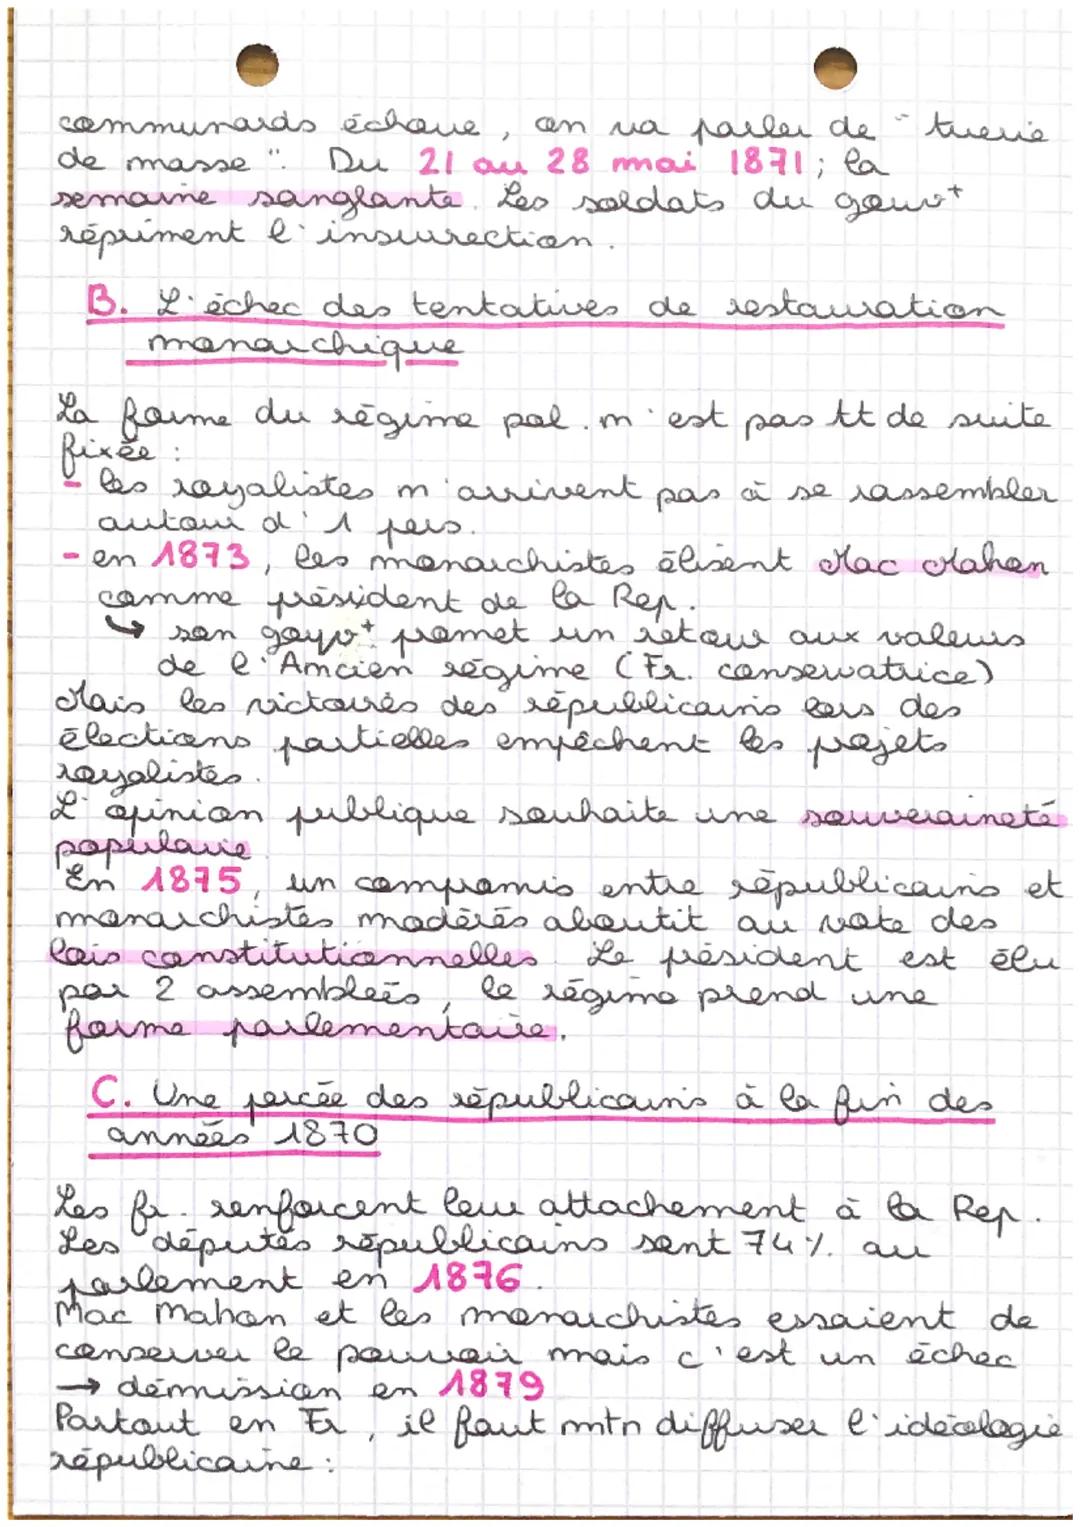 communards échoue, on va parler de "tuerie
de masse". Du 21 au 28 mai 1871; la
semaine sanglante. Les soldats du gouvt
répriment l'insurrection.
B. L'échec des tentatives de restauration
monarchique
La forme du régime pol. n'est pas tt de suite
fixée :
- les royalistes n'arrivent pas à se rassembler
autour d'1 pers.
- en 1873, les monarchistes élisent Mac Mahon
comme président de la Rep.
↳ son gouvt promet un retour aux valeurs
de l'Ancien régime (Fr. conservatrice)
Mais les victoires des républicains lors des
élections partielles empêchent les projets
royalistes.
L'opinion publique souhaite une souveraineté
populaire
En 1875, un compromis entre républicains et
monarchistes modérés aboutit au vote des
lois constitutionnelles. Le président est élu
par 2 assemblées, le régime prend une
forme parlementaire.
C. Une percée des républicains à la fin des
années 1870
Les fr. renforcent leur attachement à la Rep.
Les députés républicains sont 74% au
parlement en 1876.
Mac Mahon et les monarchistes essaient de
conserver le pouvoir mais c'est un échec
→ démission en 1879
Partout en Fr, il faut mtn diffuser l'idéologie
républicaine :